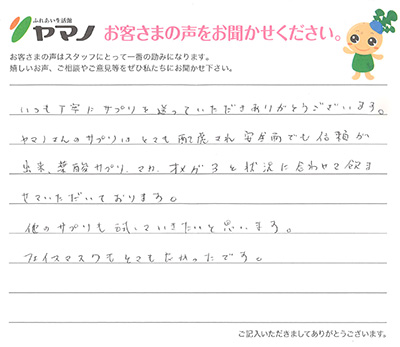 ふれあい生活館
ヤマノ
お客さまの声をお聞かせください。
お客さまの声はスタッフにとって一番の励みになります。
嬉しいお声、ご相談やご意見等をぜひ私たちにお聞かせ下さい。
いつも丁寧にサプリを送っていただきありがとうございます。
ヤマノさんのサプリはとても配慮され安全面でも信頼が
出来、葉酸サプリ、マカ、オメガ3と状況に合わせて飲ま
せていただいております。
他のサプリも試していきたいと思います。
フェイスマスクもとてもよかったです。
ご記入いただきましてありがとうございます。